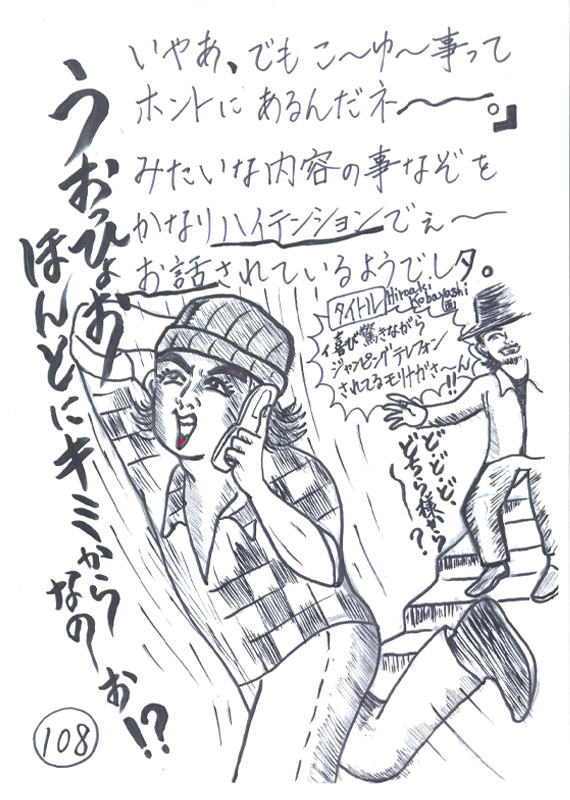 いやあ、でもこ〜ゆ〜事って
ホントにあるんだネ〜〜。』
みたいな内容の事なぞを
かなりハイテンションでぇ〜
お話されているようでしタ。
うおっひょお/
ほんとにキミからなの
ぉ!?
タイトル
Hiroaki
Kobayashi
画
喜び驚きながら
ジャンピングテレフォン
されてるモリナガさ〜ん
!!
ど、ど、ど、
どちら様から
〜?
108